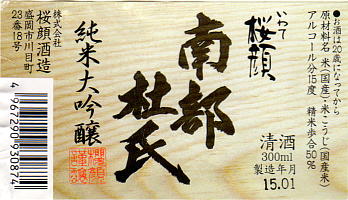 ●お酒は20歳になってから
原材料名 米(国産)・米こうじ(国産米)
アルコール分15度 精米歩合50%
いわて
桜顔
清酒
300ml
製造年月
15.01
南部
杜氏
純米大吟醸
株式会社
桜顔酒造
盛岡市川目町
23番18号
4967290930874